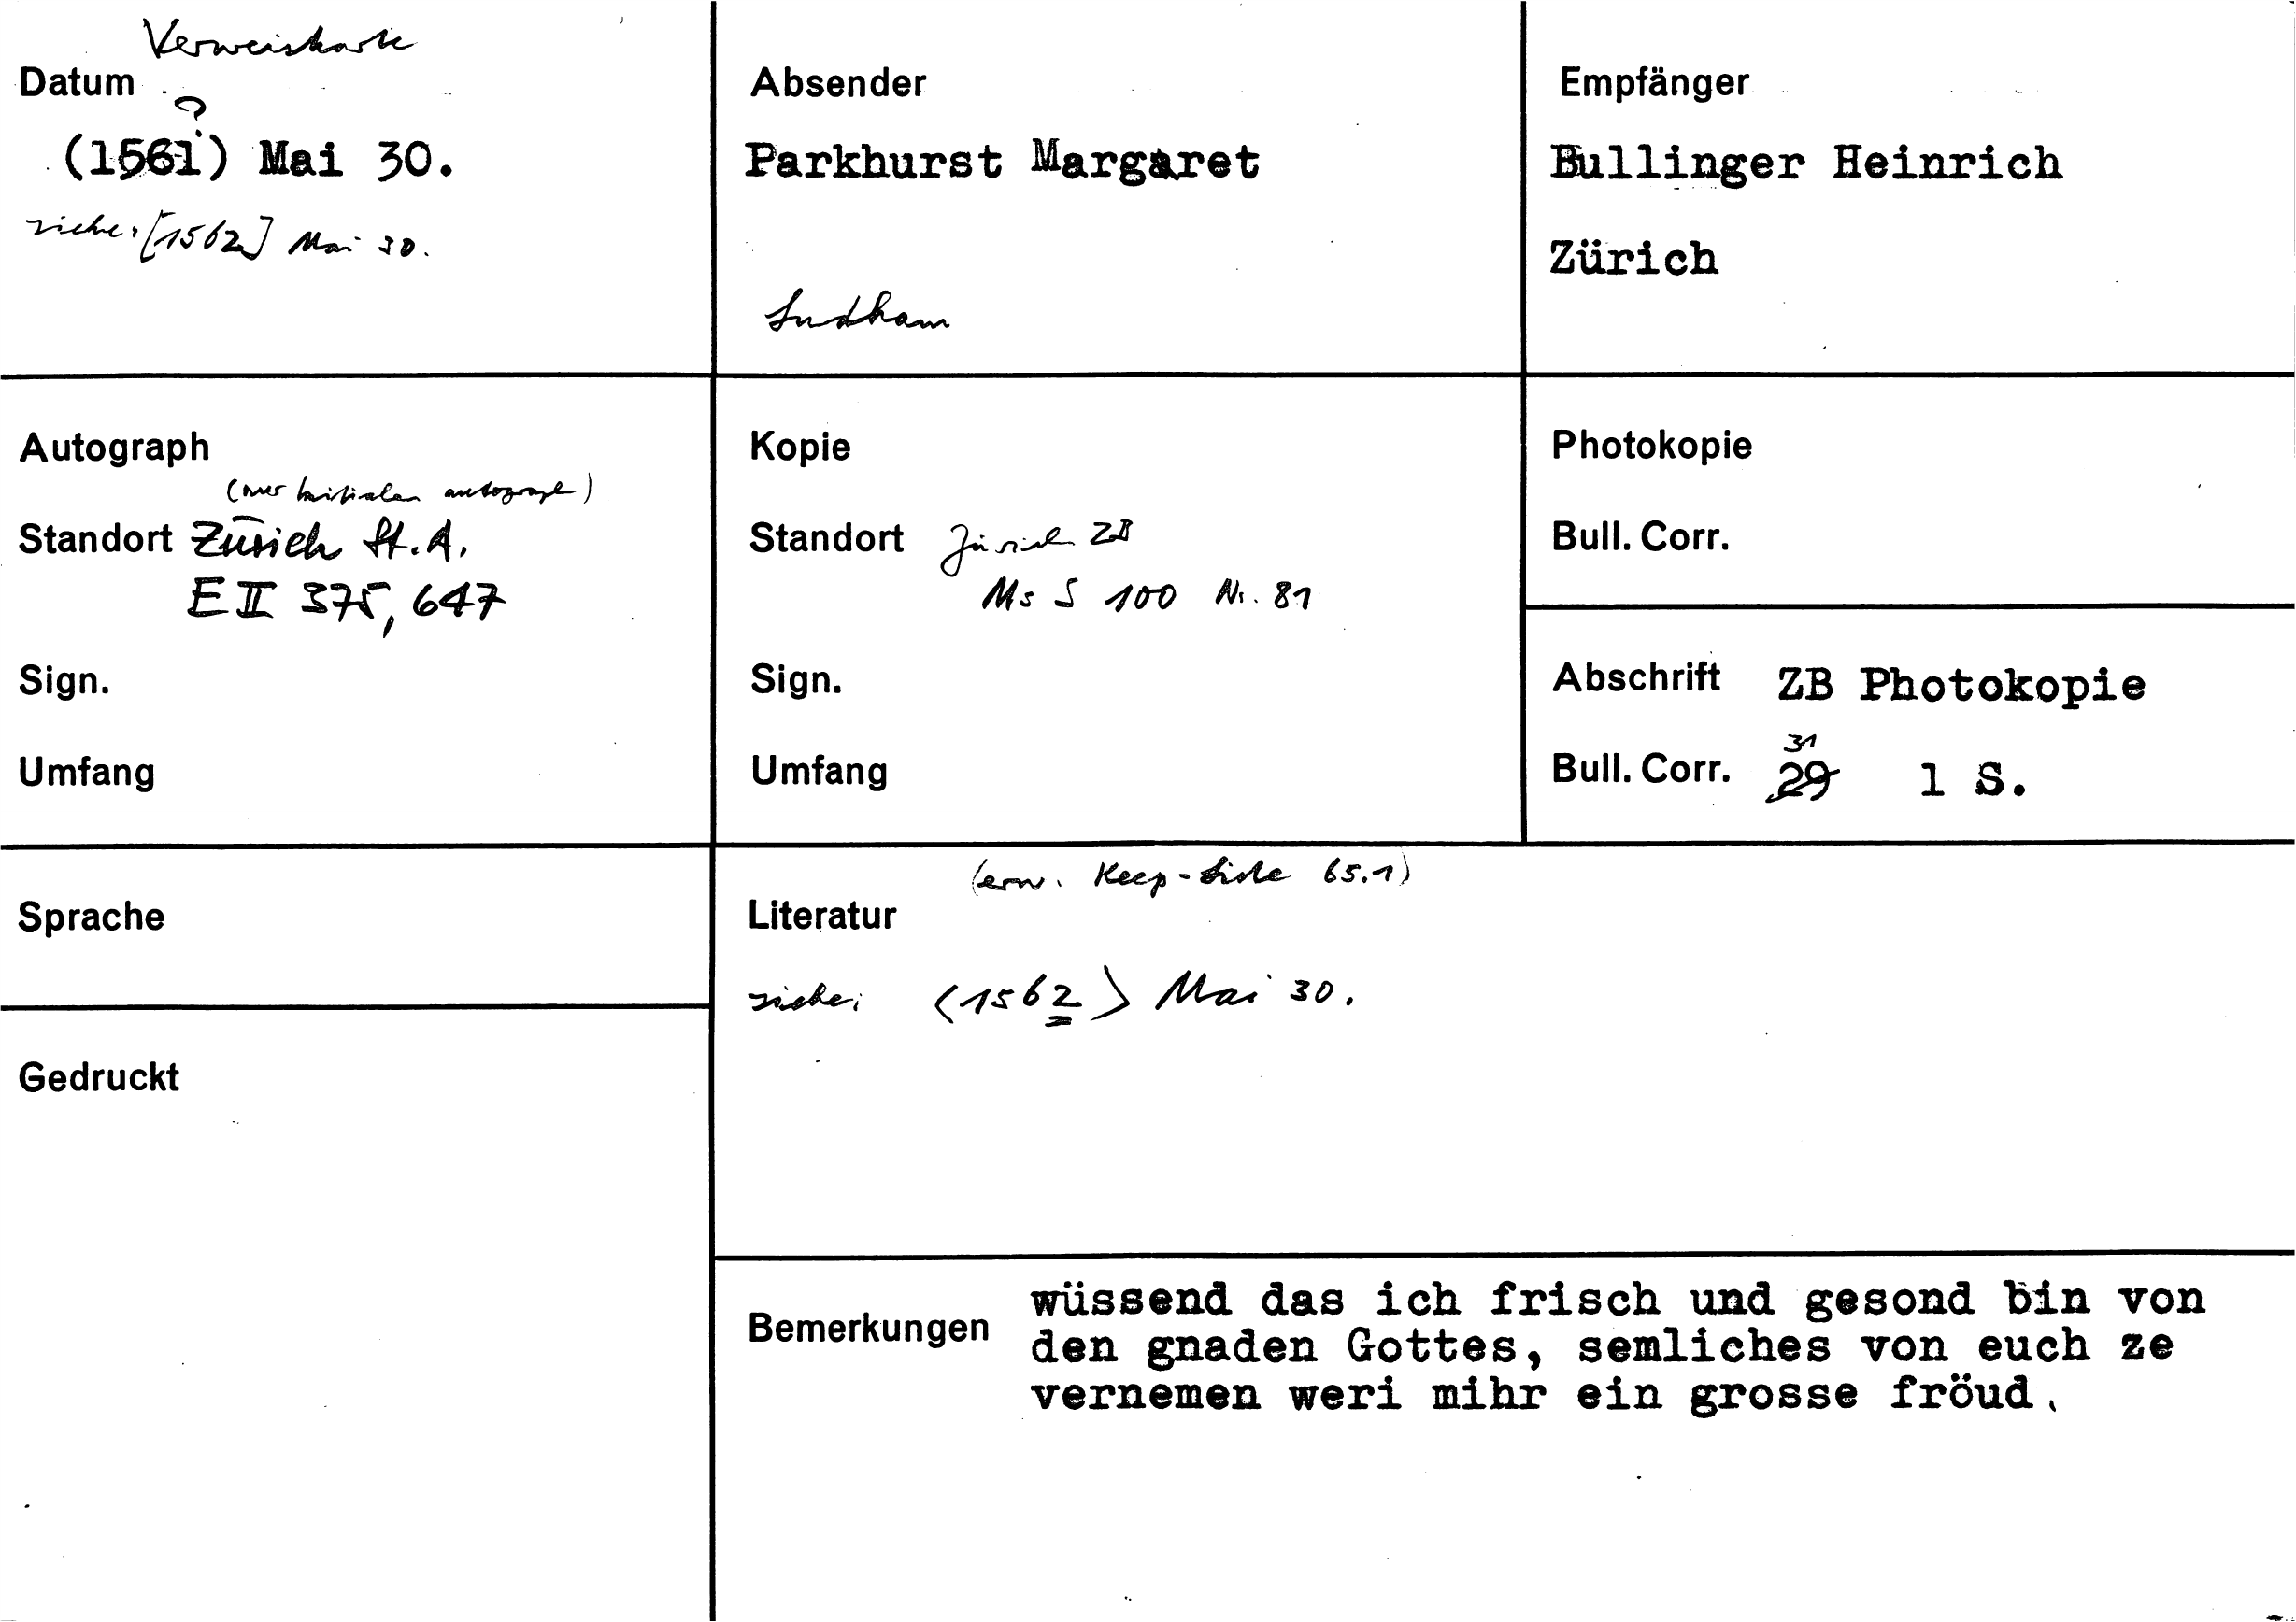 Verweiskarte
Datum
?
(1561) Mai 30.
siehe: [1562] Mai 30.
Absender
Parkhurst Margaret
Ludham
Empfänger
Bullinger Heinrich
Zürich
Autograph
(nur Initialen autograph)
Standort Zürich St.A.
E II 375, 647
Sign.
Umfang
Kopie
Standort Zürich ZB
Ms S 100 Nr. 81
Sign.
Umfang
Photokopie
Bull. Corr.
Abschrift ZB Photokopie
31
Bull. Corr. 29 1 S.
Sprache
Gedruckt
(erw. Keep-Liste 65.1)
Literatur
siehe: <1562> Mai 30.
Bemerkungen
wüssend das ich frisch und gesond bin von
den gnaden Gottes, semliches von euch ze
vernemen weri mihr ein grosse fröud.